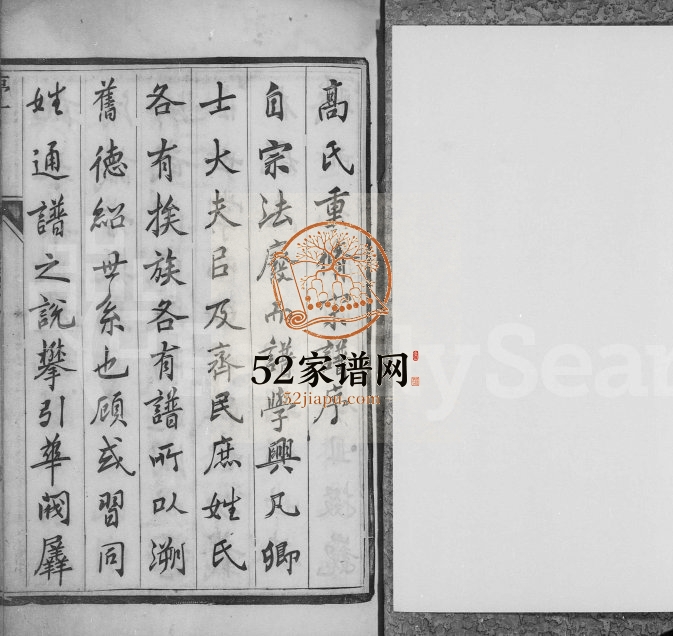 高氏重脩宗譜序
自宗法廢而譜學興凡卿
士大夫㠯及齊民庶姓氏
各有挨族各有譜所以溯
舊德紹世系也顧或習同
姓通譜之說攀引華閥羼
52家谱网
52jiapu.com